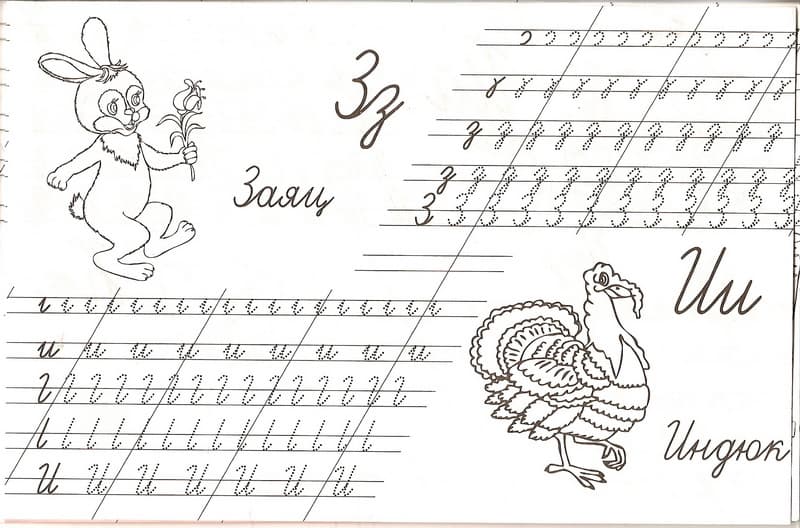 Зз
Заяц
з з з з з з з з з з з з
з з з з з з з з з з з з з
З З З З З З З З З З З З З
Ии
и и и и и и и и и
И И И И И И И
Индюк